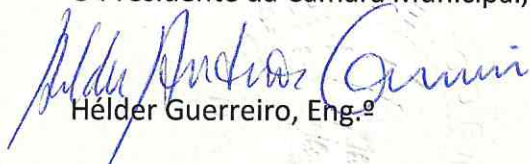 O Presidente da Câmara Municipal,
Hélder Guerreiro, Eng.º